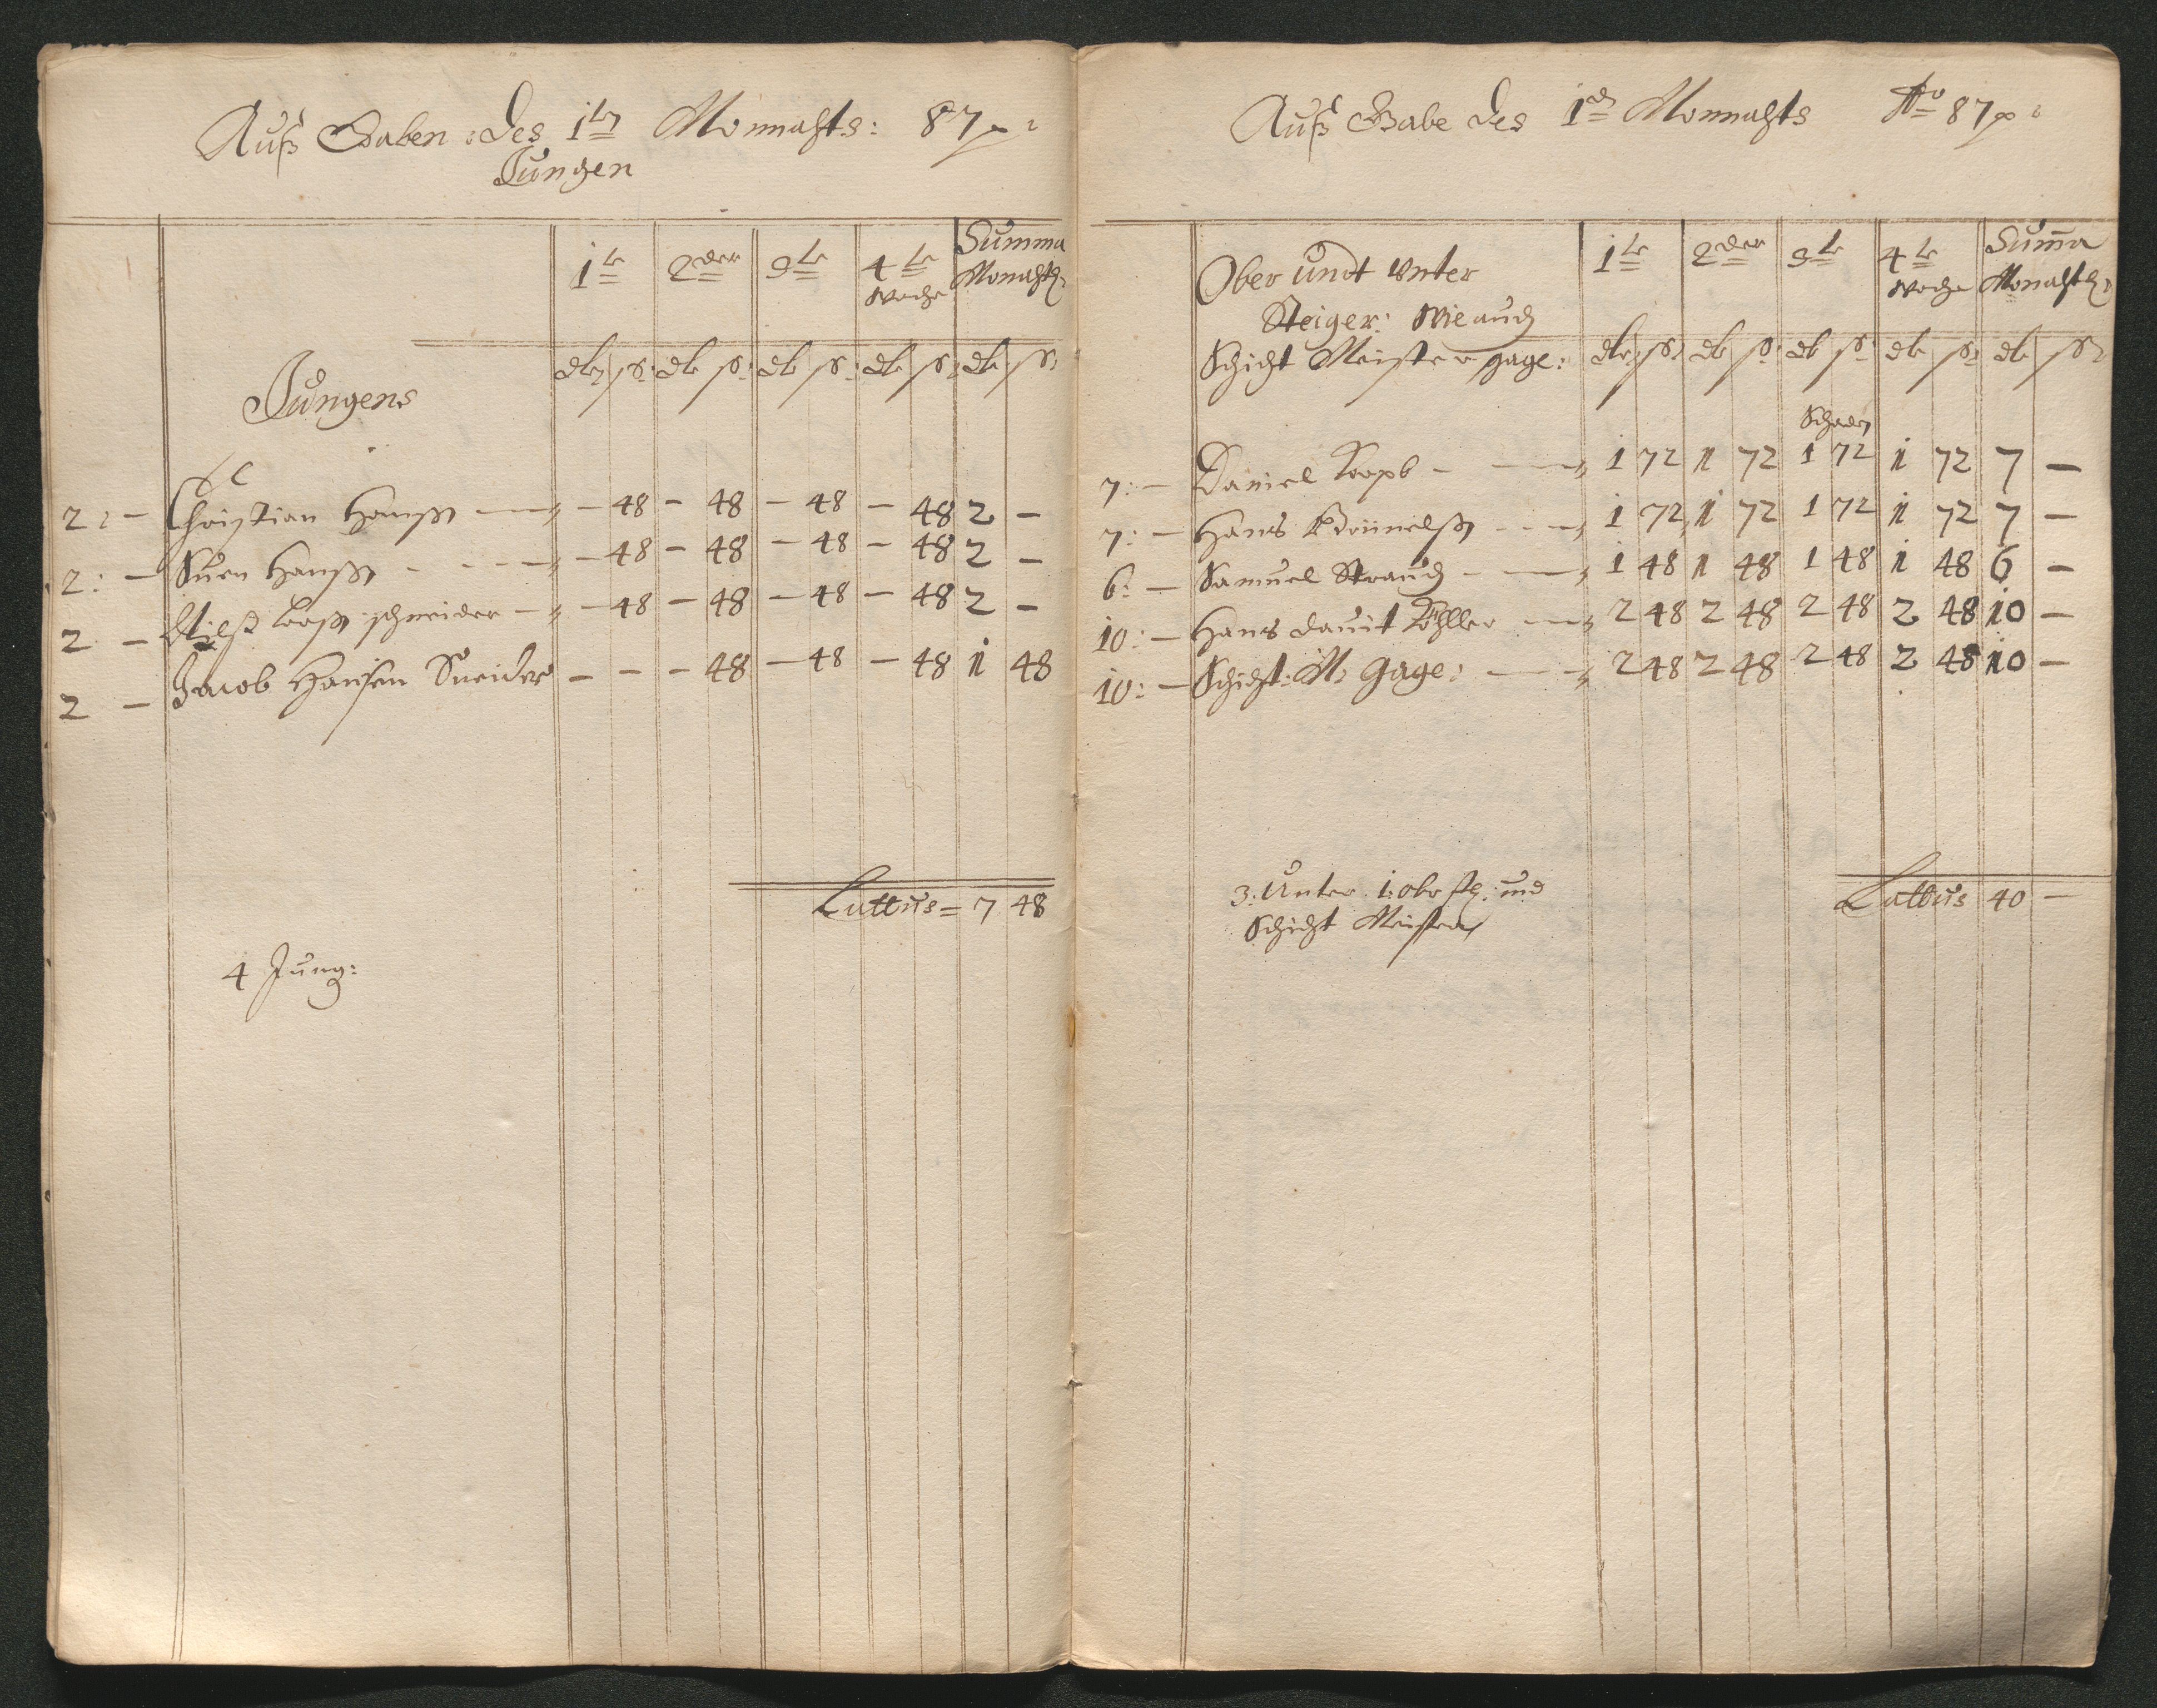 Auß Gaben des 1ten Monnahts: 87
Jungen
1te 2der 3te 4te Woche Summa Monahtl:
dlr ß: dlr ß: dlr ß: dlr ß: dlr ß:
Jungens
2: — Christian Hanß — 48 — 48 — 48 — 48 2 —
2: — Suen Hanß — 48 — 48 — 48 — 48 2 —
2 — schneider — 48 — 48 — 48 — 48 2 —
2 — Jacob Hansen Sneider — — — 48 — 48 — 48 1 48
Lattus = 7 48
4 Jung:
Auß Gabe des 1 Monnahts Ao 87
Ober undt Unter
Steiger: Wie auch
Schicht Meister gage:
1te 2der 3te 4te Woche Suma Monahtl:
dlr ß: dlr ß: dlr ß: dlr ß: dlr ß:
7: — Daniel — 1 72 1 72 1 72 1 72 7 —
7: — Hans — 1 72 1 72 1 72 1 72 7 —
6: — Samuel Strauch — 1 48 1 48 1 48 1 48 6 —
10: — Hans dauit Köhller — 2 48 2 48 2 48 2 48 10 —
10: — Schicht: M: gage: — 2 48 2 48 2 48 2 48 10 —
3: Unter 1: obr stg: und
Schicht Meister
Lattus 40 —